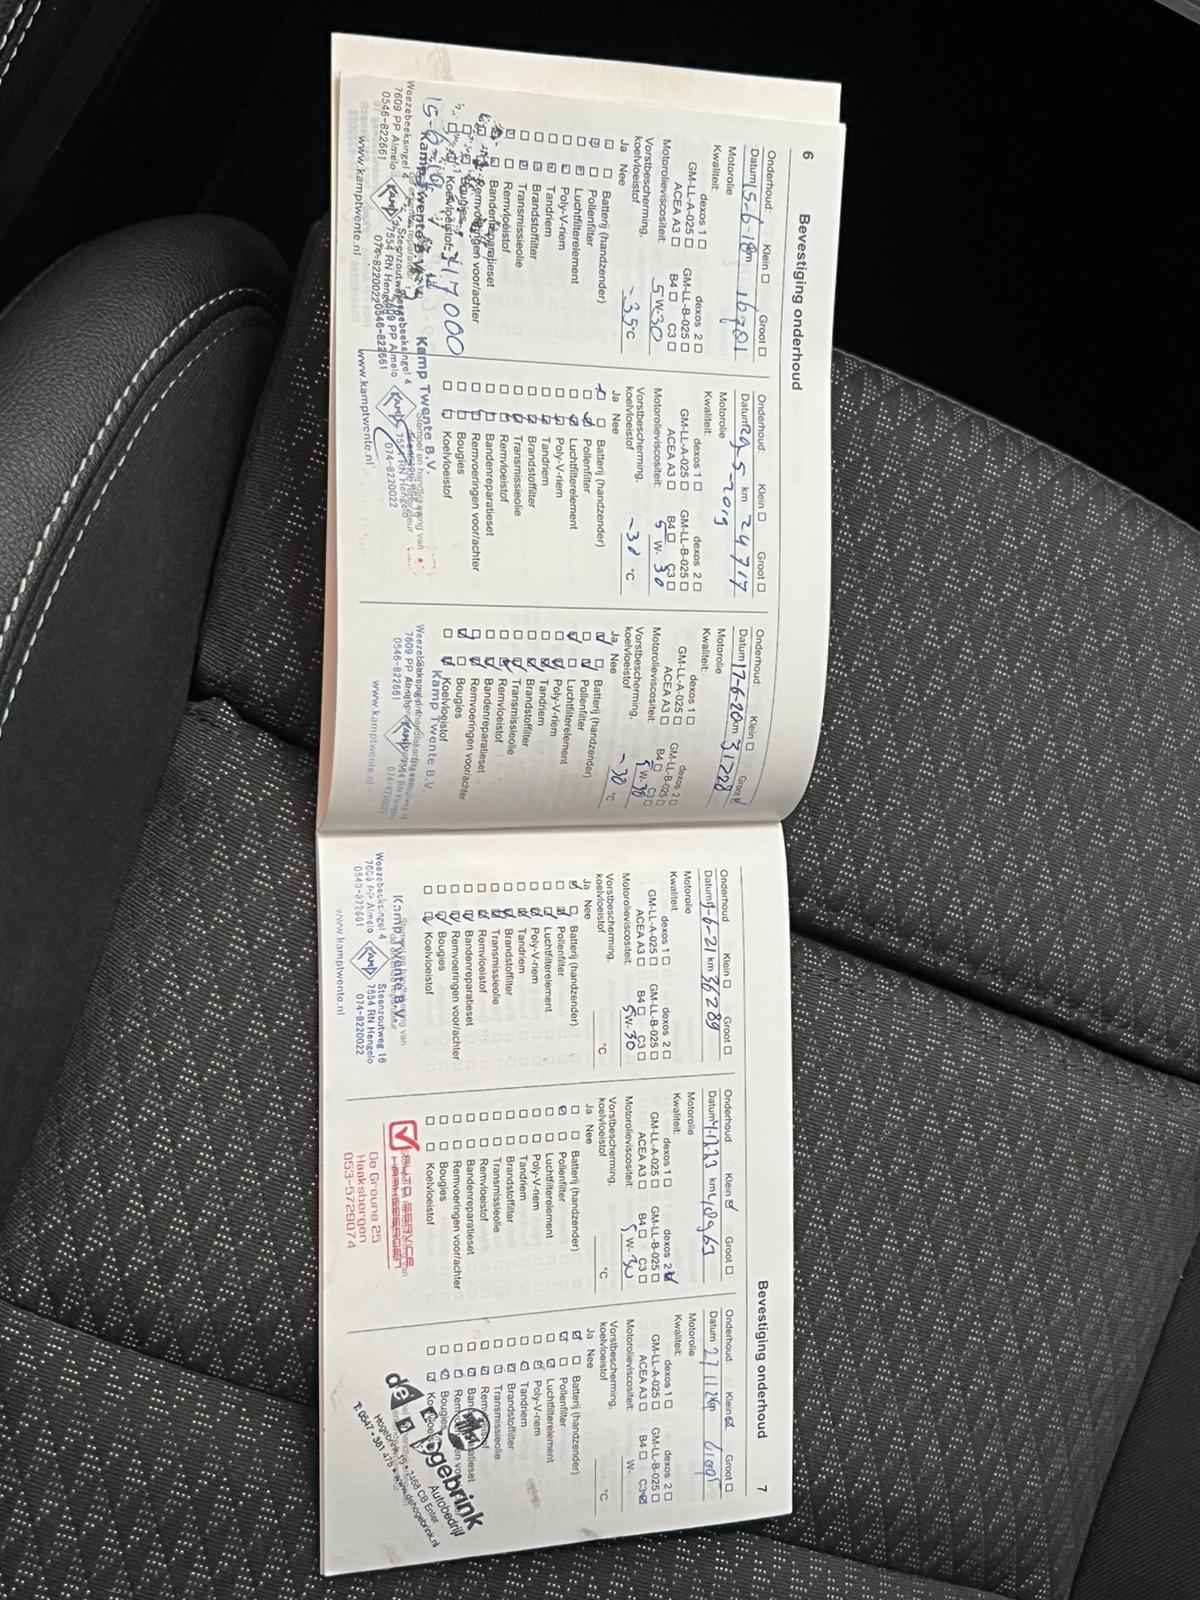 6
Bevestiging onderhoud
Onderhoud: Klein Groot
Datum 15-6-18 km
Motorolie
Kwaliteit:
dexos 1 dexos 2
GM-LL-A-025 GM-LL-B-025
ACEA A3 B4 C3
Motorolieviscositeit: 5W-30
Vorstbescherming,
koelvloeistof -35°C
Ja Nee
Batterij (handzender)
Pollenfilter
Luchtfilterelement
Poly-V-riem
Tandriem
Brandstoffilter
Transmissieolie
Remvloeistof
Bandenreparatieset
Remvoeringen voor/achter
Bougies
Koelvloeistof
Kamp Twente B.V.
Weezebeeksingel 4
7609 PP Almelo
0546-822661
Steenzoutweg
7554 RN Hengelo
074-8220022
www.kamptwente.nl
Onderhoud: Klein Groot
Datum 29-5-2019 km 24717
Motorolie
Kwaliteit:
dexos 1 dexos 2
GM-LL-A-025 GM-LL-B-025
ACEA A3 B4 C3
Motorolieviscositeit: 5 W- 30
Vorstbescherming,
koelvloeistof -30 °C
Ja Nee
Batterij (handzender)
Pollenfilter
Luchtfilterelement
Poly-V-riem
Tandriem
Brandstoffilter
Transmissieolie
Remvloeistof
Bandenreparatieset
Remvoeringen voor/achter
Bougies
Koelvloeistof
Kamp Twente B.V.
Weezebeeksingel 4
7609 PP Almelo
0546-822661
Kamp
7554 RN Hengelo
074-8220022
www.kamptwente.nl
Onderhoud: Klein Groot
Datum 17-6-20 km 31228
Motorolie
Kwaliteit:
dexos 1 dexos 2
GM-LL-A-025 GM-LL-B-025
ACEA A3 B4
Motorolieviscositeit: 5W-30
Vorstbescherming,
koelvloeistof -30 °C
Ja Nee
Batterij (handzender)
Pollenfilter
Luchtfilterelement
Poly-V-riem
Tandriem
Brandstoffilter
Transmissieolie
Remvloeistof
Bandenreparatieset
Remvoeringen voor/achter
Bougies
Koelvloeistof
Kamp Twente B.V.
7609 PP Almelo
0546-822661
www.kamptwente.nl
Bevestiging onderhoud
7
Onderhoud Klein Groot
Datum -6-21 km 36289
Motorolie
Kwaliteit
dexos 1 dexos 2
GM-LL-A-025 GM-LL-B-025
ACEA A3 B4 C3
Motorolieviscositeit: 5W-30
Vorstbescherming,
koelvloeistof °C
Ja Nee
Batterij (handzender)
Pollenfilter
Luchtfilterelement
Poly-V-riem
Tandriem
Brandstoffilter
Transmissieolie
Remvloeistof
Bandenreparatieset
Remvoeringen voor/achter
Bougies
Koelvloeistof
Kamp Twente B.V.
Weezebeeksingel 4
7609 PP Almelo
0546-822661
Kamp
Steenzoutweg 16
7554 RN Hengelo
074-8220022
www.kamptwente.nl
Onderhoud: Klein Groot
Datum km
Motorolie
Kwaliteit:
dexos 1 dexos 2
GM-LL-A-025 GM-LL-B-025
ACEA A3 B4 C3
Motorolieviscositeit: 5 W- 30
Vorstbescherming,
koelvloeistof °C
Ja Nee
Batterij (handzender)
Pollenfilter
Luchtfilterelement
Poly-V-riem
Tandriem
Brandstoffilter
Transmissieolie
Remvloeistof
Bandenreparatieset
Remvoeringen voor/achter
Bougies
Koelvloeistof
AUTO SERVICE
HAAKSBERGEN
De Groune 25
Haaksbergen
053-5729074
Onderhoud: Klein Groot
Datum 27 11 24 km
Motorolie
Kwaliteit:
dexos 1 dexos 2
GM-LL-A-025 GM-LL-B-025
ACEA A3 B4 C3
Motorolieviscositeit: W-
Vorstbescherming,
koelvloeistof °C
Ja Nee
Batterij (handzender)
Pollenfilter
Luchtfilterelement
Poly-V-riem
Tandriem
Brandstoffilter
Transmissieolie
Bougies
de Hogebrink
Autobedrijf
7468 CB Enter
T: 0547 - 381 478 • www.dehogebrink.nl